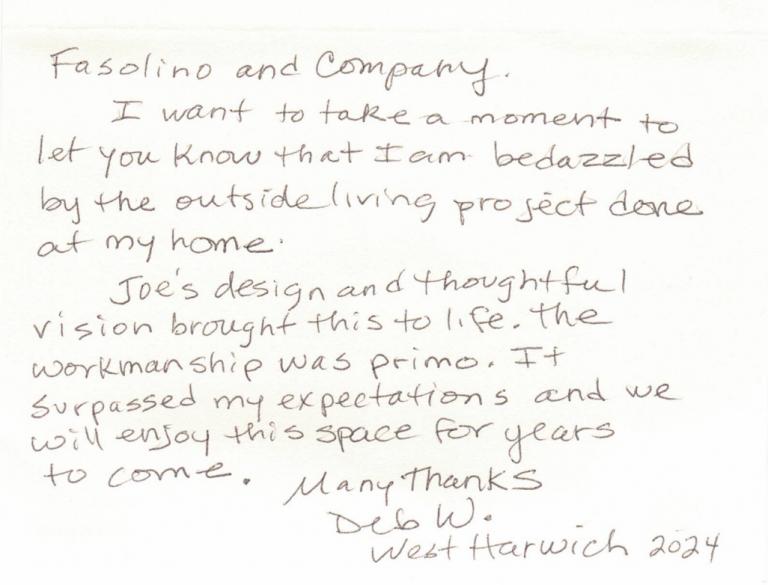 Fasolino and Company.
I want to take a moment to
let you know that I am bedazzled
by the outside living project done
at my home.
Joe's design and thoughtful
vision brought this to life. The
workmanship was primo. It
surpassed my expectations and we
will enjoy this space for years
to come.
Many Thanks
Deb W.
West Harwich 2024